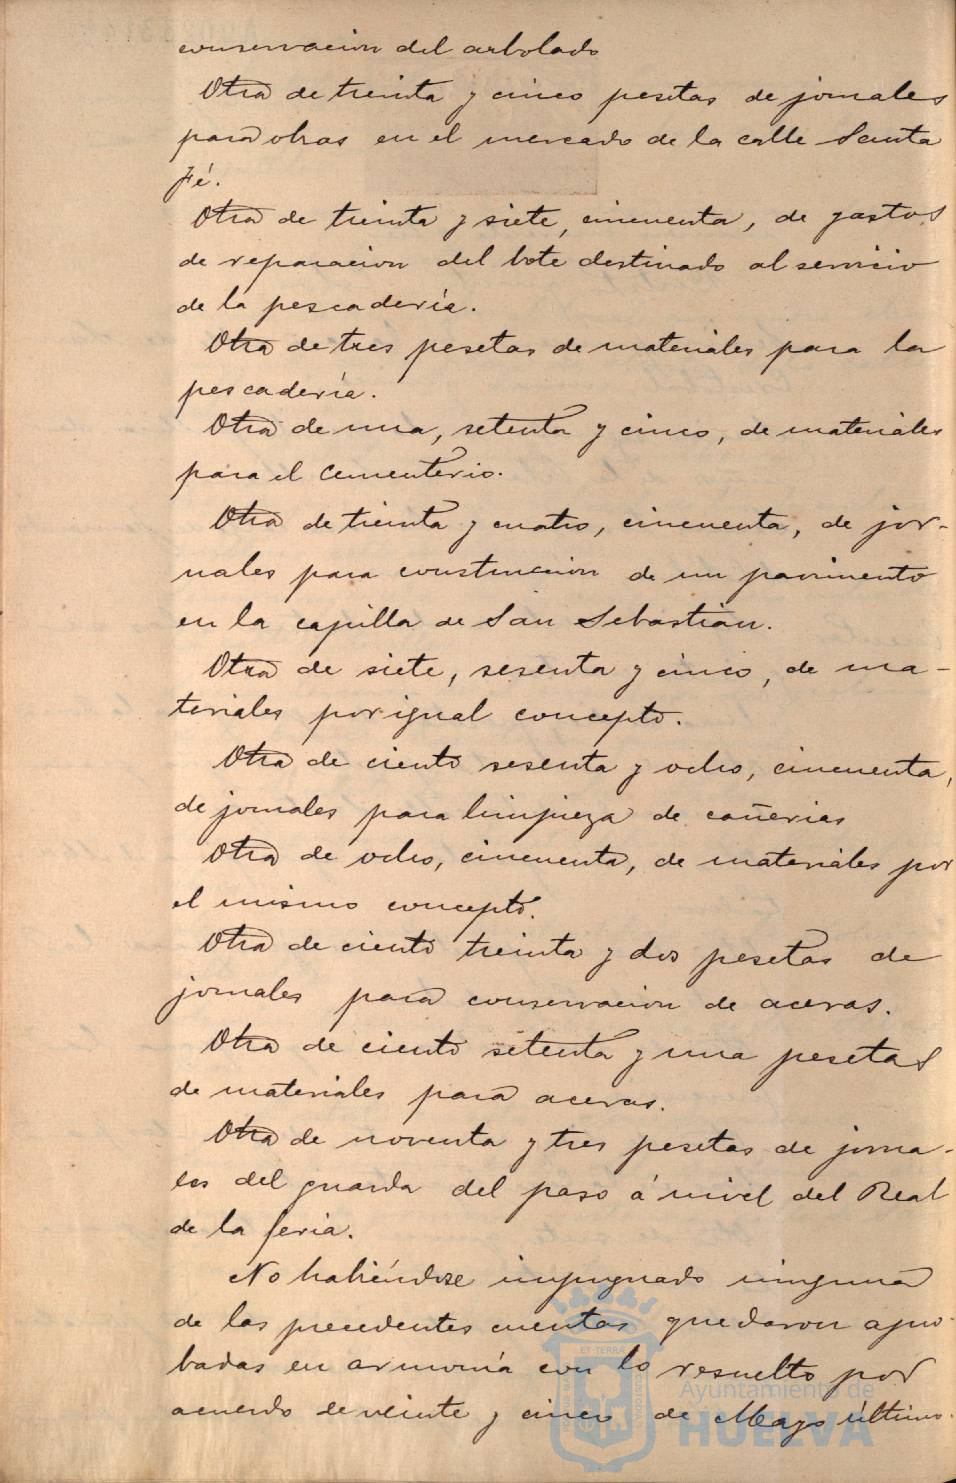 conservacion del arbolado
Otra de treinta y cinco pesetas de jornales
para obras en el mercado de la calle Santa
Fé.
Otra de treinta y siete, cincuenta, de gastos
de reparacion del bote destinado al servicio
de la pescadería.
Otra de tres pesetas de materiales para la
pescadería.
Otra de una, setenta y cinco, de materiales
para el Cementerio.
Otra de treinta y cuatro, cincuenta, de jor-
nales para construccion de un pavimento
en la capilla de San Sebastian.
Otra de siete, sesenta y cinco, de ma-
teriales por igual concepto.
Otra de ciento sesenta y ocho, cincuenta,
de jornales para limpieza de cañerias
Otra de ocho, cincuenta, de materiales por
el mismo concepto.
Otra de ciento treinta y dos pesetas de
jornales para conservacion de aceras.
Otra de ciento setenta y una pesetas
de materiales para aceras.
Otra de noventa y tres pesetas de jorna-
les del guarda del paso á nivel del Real
de la feria.
No habiéndose impugnado ninguna
de las precedentes cuentas quedaron apro-
badas en armonía con lo resuelto por
acuerdo de veinte y cinco de Mayo último.
Ayuntamiento de
HUELVA